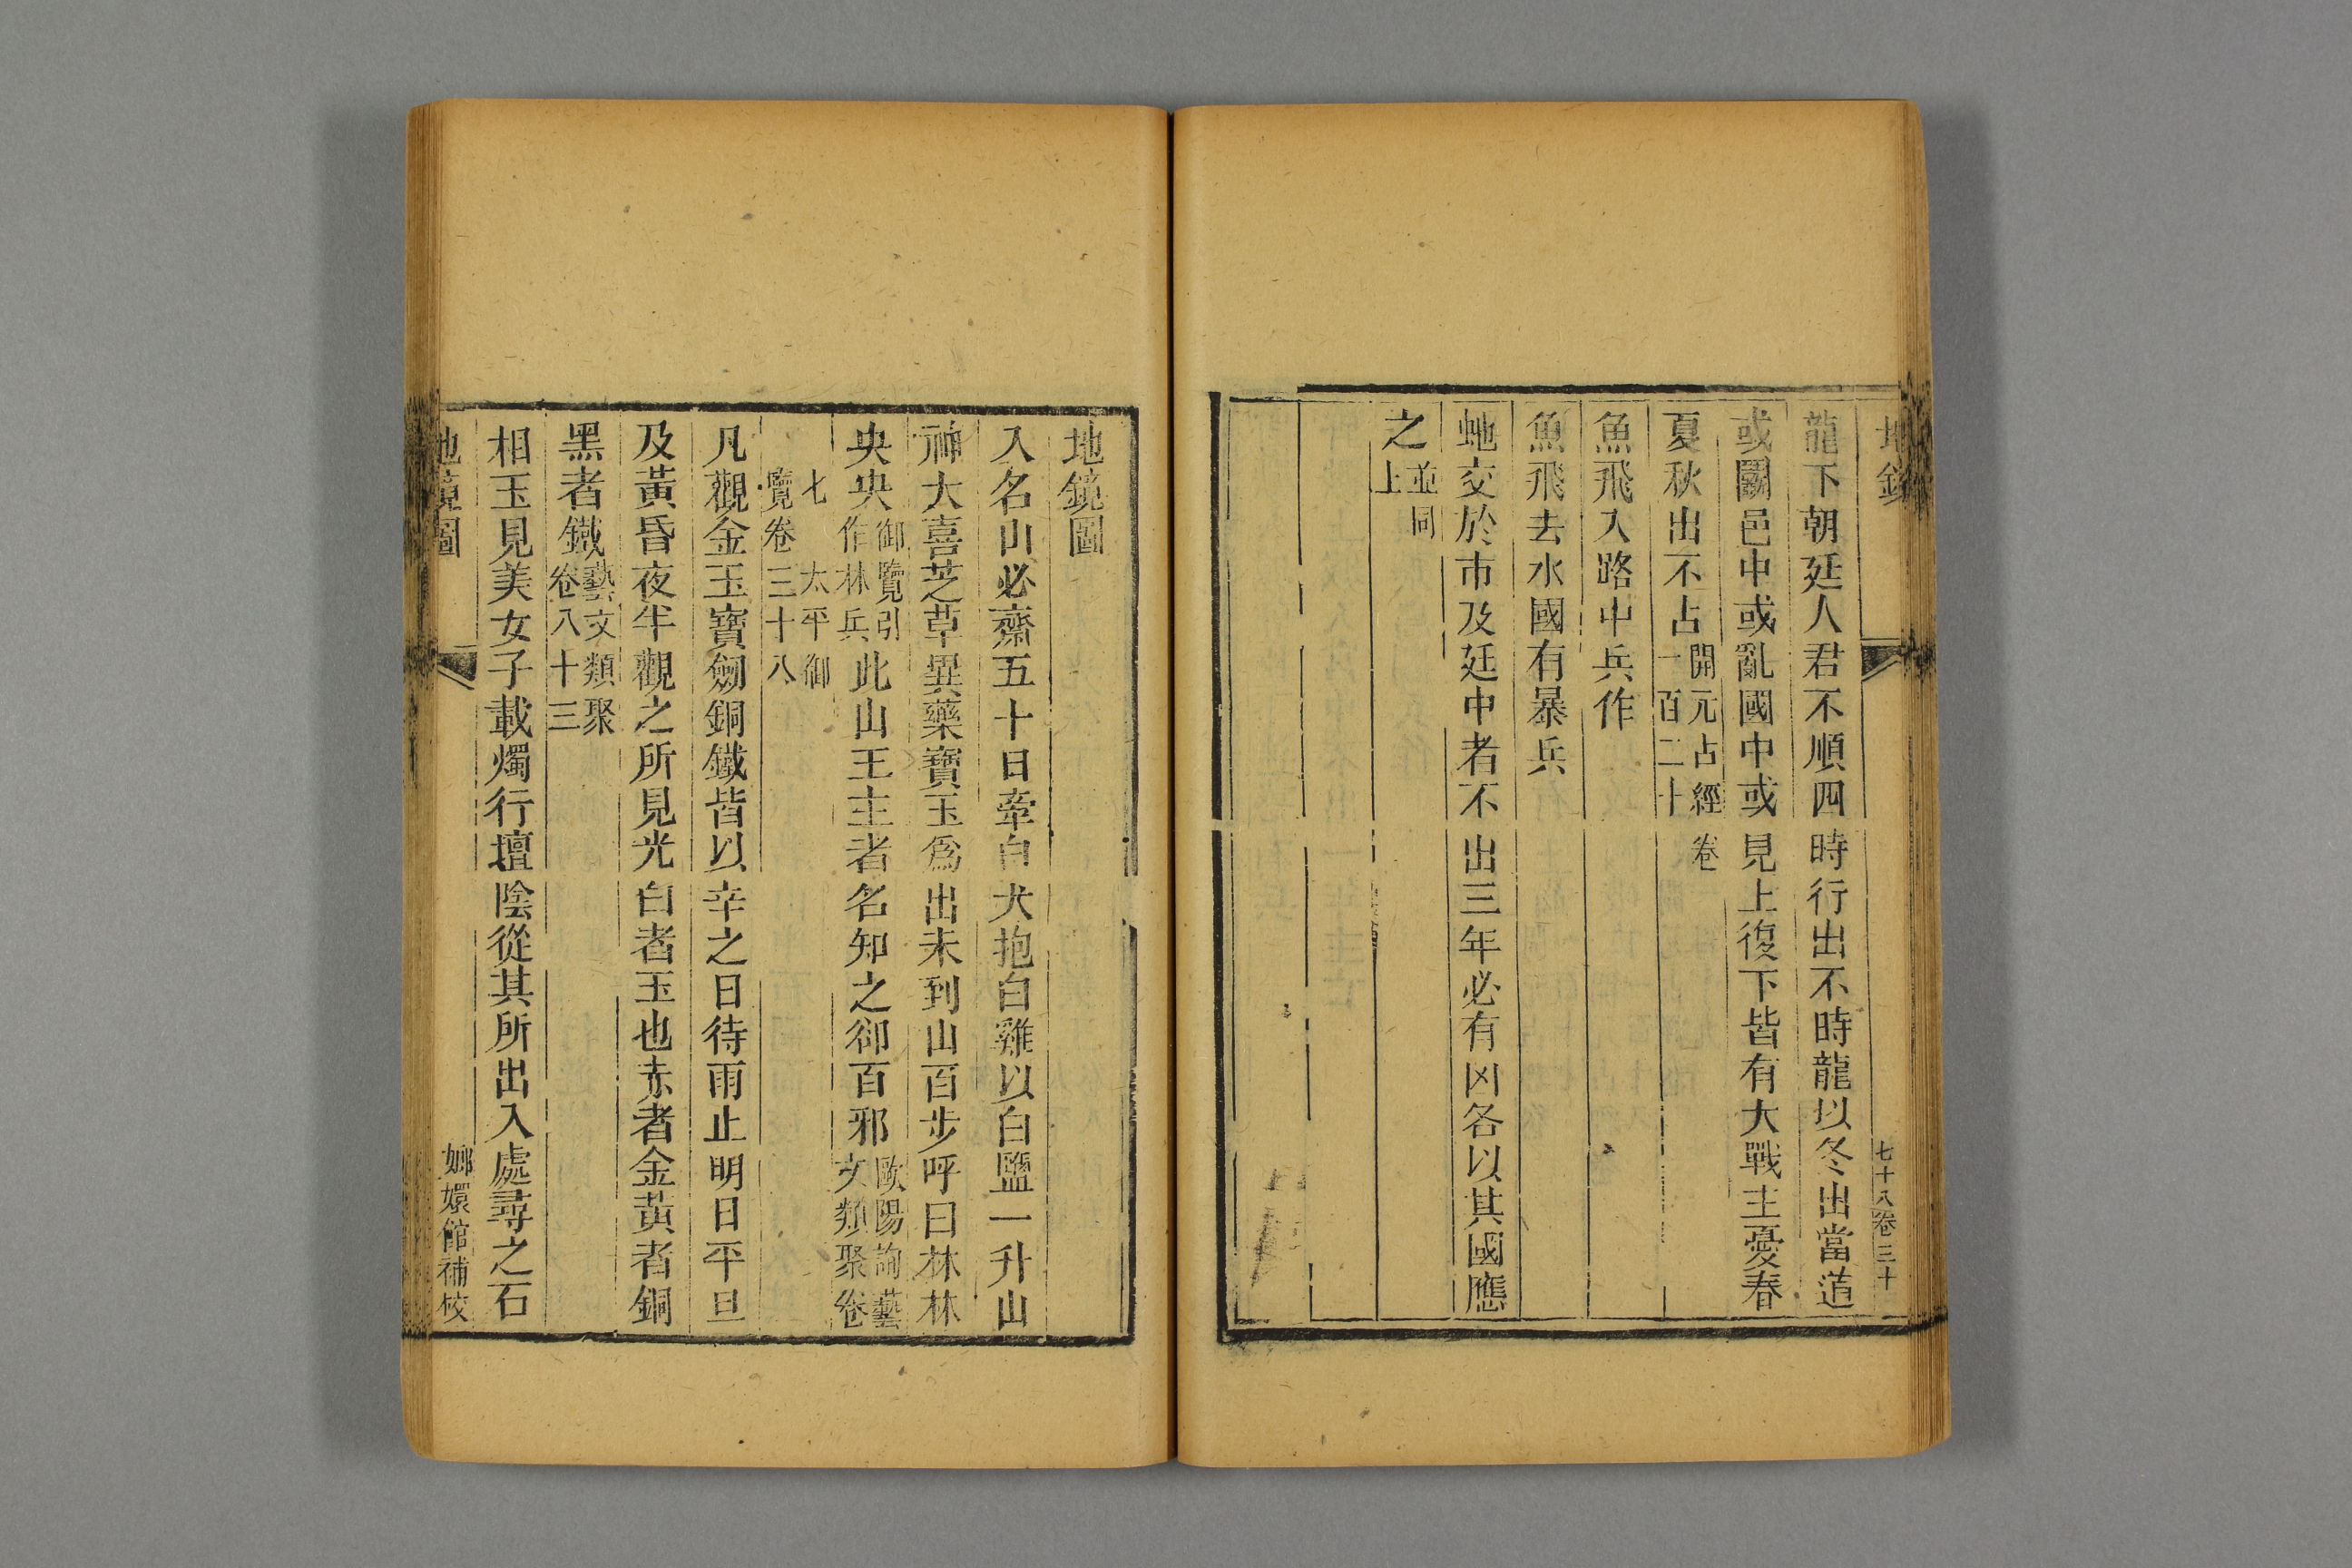 地鏡
七十八卷三十
龍下朝廷人君不順四時行出不時龍以冬出當道
或鬭邑中或亂國中或見上復下皆有大戰主憂春
夏秋出不占開元占經卷
一百二十
魚飛入路中兵作
魚飛去水國有暴兵
虵交於市及廷中者不出三年必有凶各以其國應
之並同
上
地鏡圖
入名山必齋五十日牽白犬抱白雞以白鹽一升山
神大喜芝草異藥寶玉爲出未到山百步呼曰林林
央央御覽引
作林兵此山王主者名知之郤百邪歐陽詢藝
文類聚卷
七 太平御
覽卷三十八
凡觀金玉寶劒銅鐵皆以辛之日待雨止明日平旦
及黃昏夜半觀之所見光白者玉也赤者金黃者銅
黑者鐵藝文類聚
卷八十三
相玉見美女子載燭行壇陰從其所出入處尋之石
地鏡圖
嫏嬛館補校